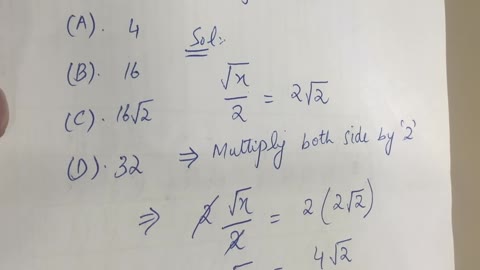 (A). 4
(B). 16
(C). 16√2
(D). 32
Sol:
√x/2 = 2√2
⇒ Multiply both side by '2'
⇒ 2 √x/2 = 2(2√2)
4√2